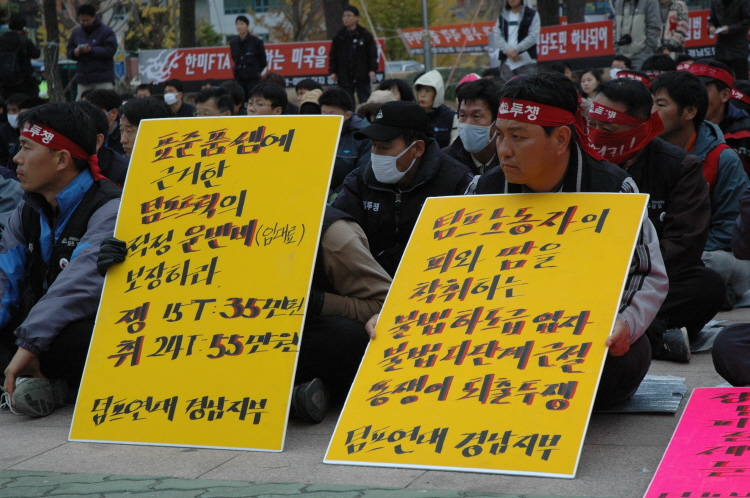 한미FTA
남도민이 하나되어
투쟁
투쟁
투쟁
표준품셈에
근거한
덤프트럭의
적정 운반비(임대료)
보장하라
쟁 15T:35만원
취 24T:55만원
덤프연대 경남지부
덤프노동자의
피와 땀을
착취하는
불법하도급업자
불법다단계근절
총쟁이 퇴출투쟁
덤프연대 경남지부